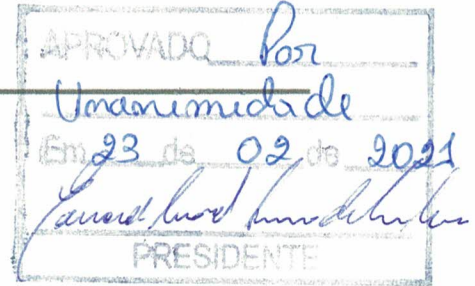 APROVADO Por
Unanimidade
Em 23 de 02 de 2021
PRESIDENTE